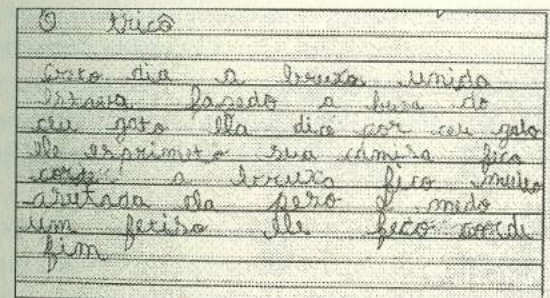 O tricô
Certo dia a bruxa unida
estava fasedo a busa do
ceu gato ela dice por ceu gato
ele esprimeto sua camisa fico
a bruxa fico muito
asutada ela pego o medo
um fetiso ele feco
fim